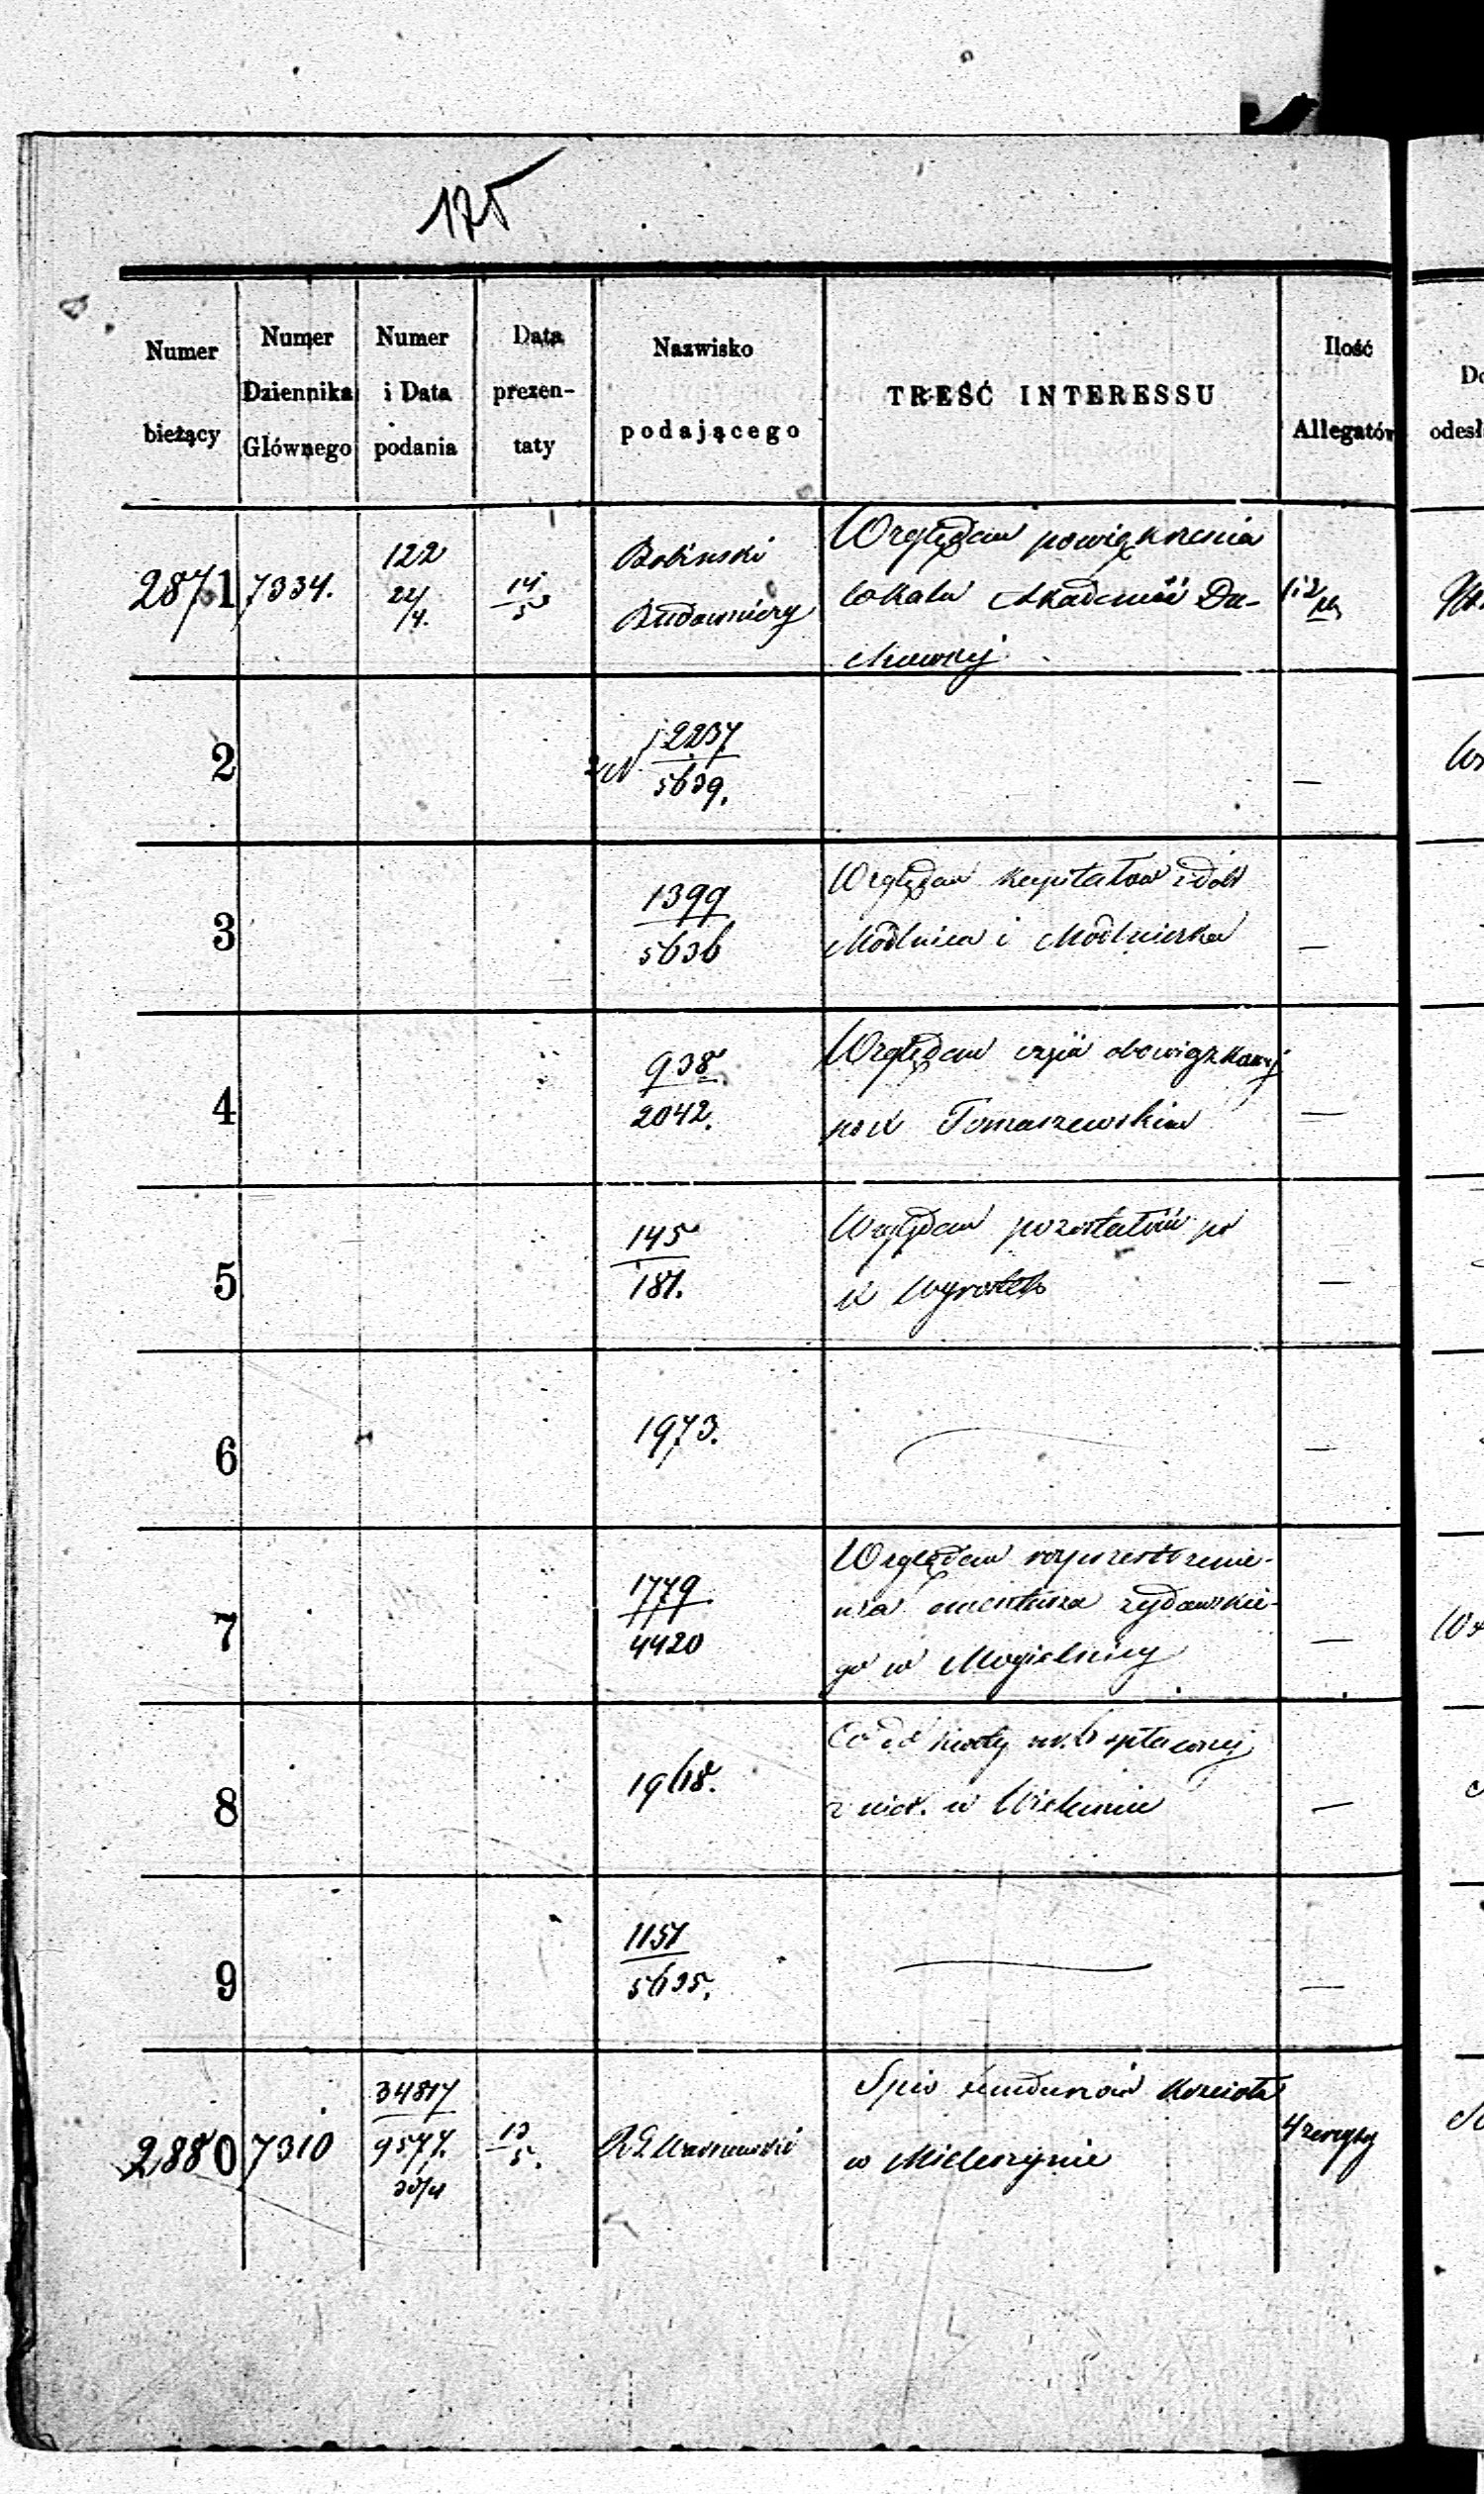 175
Numer bieżący
Numer Dziennika Głównego
Numer i Data podania
Data prezen- taty
Nazwisko podającego
TREŚĆ INTERESSU
Ilość Allegatów
odesł
2871 7334. 122 22/4. 14/5 Bobinski Budowniczy
Względem powiększenia
lokalu Akademii Du-
chownej
2
N 12237/5639. —
3
1399/5636
Względem kapitałów z dóbr
Modlnica i Modlniczka —
4
938/2042.
Względem czyich obowiązkowej
po X Tomaszewskim —
5
145/187.
Względem pozostałości po
X —
6
1973. —
7
1779/4420
Względem rozprzestrzenie-
nia cmentarza żydowskie-
go w Mogielnicy —
8
1968.
Co do kwoty rs. 6 spłaconej
w Wieluniu —
9
1157/5635. —
2880 7310 34817/9577. 30/4 13/5. R. G. Warszawski
Spis funduszów Kościoła
w Mieleszynie
4